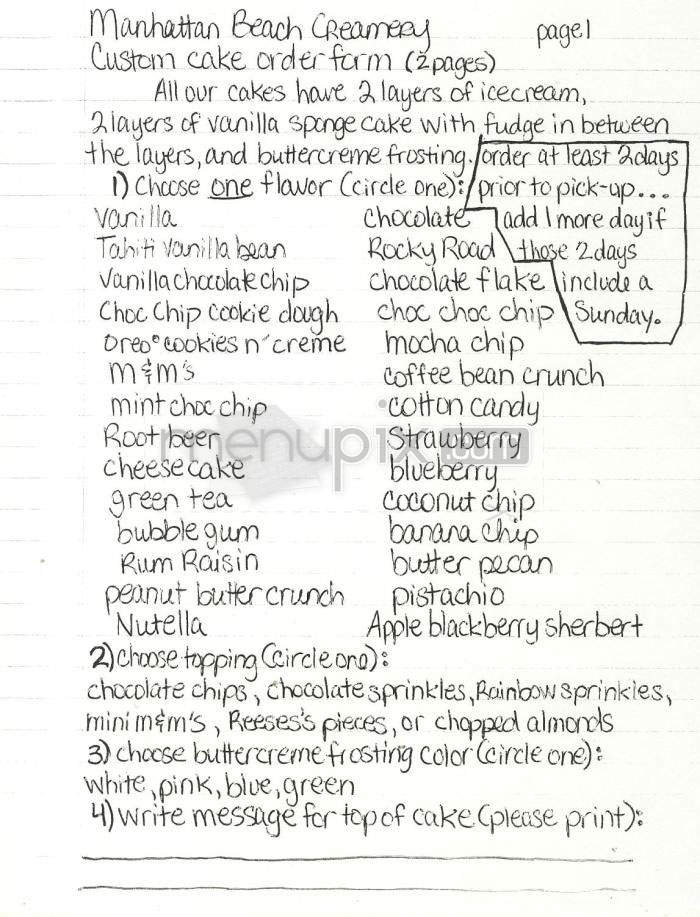 Manhattan Beach Creamery page 1
Custom cake order form (2 pages)
All our cakes have 2 layers of icecream,
2 layers of vanilla sponge cake with fudge in between
the layers, and buttercreme frosting. order at least 2 days
1) Choose one flavor (circle one): prior to pick-up...
vanilla chocolate add 1 more day if
Tahiti vanilla bean Rocky Road those 2 days
vanilla chocolate chip chocolate flake include a
Choc Chip cookie dough choc choc chip Sunday.
oreo cookies n' creme mocha chip
m&m's coffee bean crunch
mint choc chip cotton candy
Root beer Strawberry
menupix.com
cheesecake blueberry
green tea coconut chip
bubble gum banana chip
Rum Raisin butter pecan
peanut butter crunch pistachio
Nutella Apple blackberry sherbert
2) choose topping (circle one):
chocolate chips, chocolate sprinkles, Rainbow sprinkles,
mini m&m's, Reeses's pieces, or chopped almonds
3) choose buttercreme frosting color (circle one):
white, pink, blue, green
4) write message for top of cake (please print):